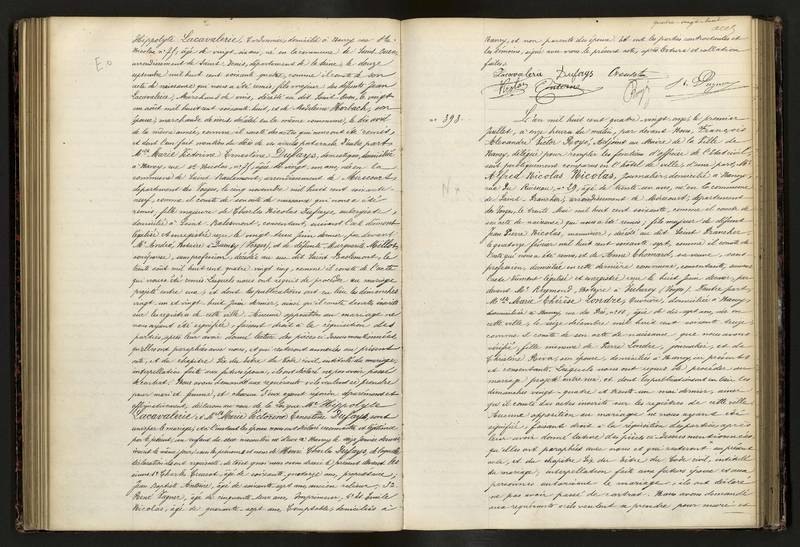 Hippolyte Lacavalerie, Cordonnier, domicilié à Nancy rue St
Nicolas n° 77, âgé de vingt six ans, né en la commune de Saint Ouen
arrondissement de Saint Denis, département de la Seine, le douze
septembre mil huit cent soixante quatre, comme il conste de son
acte de naissance qui nous a été remis, fils majeur des défunts Jean
Lacavalerie, Marchand de vins, décédé au dit Saint Ouen, le vingt
un août mil huit cent soixante huit, et de Madeleine Horbach, son
épouse, marchande de vins décédée en la même commune, le dix
de la même année, comme il conste de actes qui nous ont été remis,
Melle Marie Victorine Ernestine Dufays, domestique, domiciliée
à Nancy, rue St Nicolas, n° 77, âgée de vingt un ans, née en la
commune de Saint Baslemont, arrondissement de Mirecourt,
département des Vosges, le cinq novembre mil huit cent soixante
neuf, comme il conste de son acte de naissance qui nous a été
remis, fille majeure de Charles Nicolas Dufays, aubergiste,
domicilié à Saint Baslemont, consentant, suivant l'acte dûment
légalisé et enregistré reçu le vingt deux juin dernier, par devant
Me Notaire à Darney (Vosges), et de défunte Marguerite Millot,
son épouse, sans profession, décédée au dit Saint Baslemont, le
trente août mil huit cent quatre vingt cinq, comme il conste de l'acte
qui nous a été remis. Lesquels nous ont requis de procéder au mariage
projeté entre eux, et dont les publications ont eu lieu les dimanches
vingt un et vingt huit juin dernier, ainsi qu'il conste des actes inscrits
sur les registres de cette ville. Aucune opposition au mariage ne
nous ayant été signifiée, faisant droit à la réquisition des
parties, après leur avoir donné lecture des pièces ci dessus mentionnées
qu'elles ont paraphées avec nous, et qui resteront annexées au présent
acte, et du chapitre Six du titre du Code civil, intitulé du mariage;
interpellation faite aux futurs époux, ils ont déclaré ne pas avoir passé
de contrat. Nous avons demandé aux requérants s'ils veulent se prendre
pour mari et femme, et chacun d'eux ayant répondu séparément et
affirmativement, déclarons au nom de la Loi que Mr Hippolyte
Lacavalerie et Melle Marie Victorine Ernestine Dufays, sont
unis par le mariage, et à l'instant les époux nous ont déclaré reconnaître et légitimer
Jean Baptiste Antoine, âgé de soixante sept ans, ancien relieur,
René âgé de cinquante deux ans, Imprimeur, et Emile
Nicolas, âgé de quarante sept ans, Comptable, domiciliés à
Nancy, et non parents des époux. Et ont les parties contractantes et
les témoins, signé avec nous le présent acte, après lecture et collation
faites.
Lacavalerie Dufays
Nicolas Antoine
N° 393.
L'an mil huit cent quatre vingt onze, le premier
juillet, à onze heures du matin, par devant Nous, François
Alexandre Victor Adjoint au Maire de la Ville de
Nancy, délégué pour remplir les fonctions d'officier de l'Etat civil,
sont publiquement comparus en l'hôtel de ville, d'une part, Mr
Alfred Nicolas Nicolas, journalier, domicilié à Nancy,
rue du Ruisseau n° 29, âgé de trente un ans, né en la commune
de Saint Prancher, arrondissement de Mirecourt, département
des Vosges, le trente Mai mil huit cent soixante, comme il conste de
son acte de naissance qui nous a été remis; fils majeur de défunt
Jean Pierre Nicolas, manœuvre, décédé au dit Saint Prancher
le quatorze février mil huit cent soixante sept, comme il conste de
l'acte qui nous a été remis, et de Anne Chomard, sa veuve, sans
profession, domiciliée en cette dernière commune, consentante, suivant
l'acte dûment légalisé et enregistré reçu le huit juin dernier, par
devant Me Raymond, Notaire à Vicherey (Vosges). D'autre part,
Melle Marie Thérèse Londre, Ouvrière, domiciliée à Nancy,
domiciliée à Nancy, rue du n° 18, âgée de dix sept ans, née en
cette ville, le seize décembre mil huit cent soixante treize,
comme il conste de son acte de naissance que nous avons
vérifié, fille mineure de Pierre Londre, journalier, et de
Christine Riva, son épouse, domiciliés à Nancy, ici présents
et consentants. Lesquels nous ont requis de procéder au
mariage projeté entre eux, et dont les publications ont eu lieu les
dimanches vingt quatre et trente un mai dernier, ainsi
qu'il conste des actes inscrits sur les registres de cette ville.
Aucune opposition au mariage ne nous ayant été
signifiée, faisant droit à la réquisition des parties, après
leur avoir donné lecture des pièces ci dessus mentionnées
qu'elles ont paraphées avec nous et qui resteront au présent
acte, et du chapitre Six du titre du Code civil, intitulé
du mariage; interpellation faite aux futurs époux et aux
personnes autorisant le mariage, ils ont déclaré
ne pas avoir passé de contrat. Nous avons demandé
aux requérants s'ils veulent se prendre pour mari et